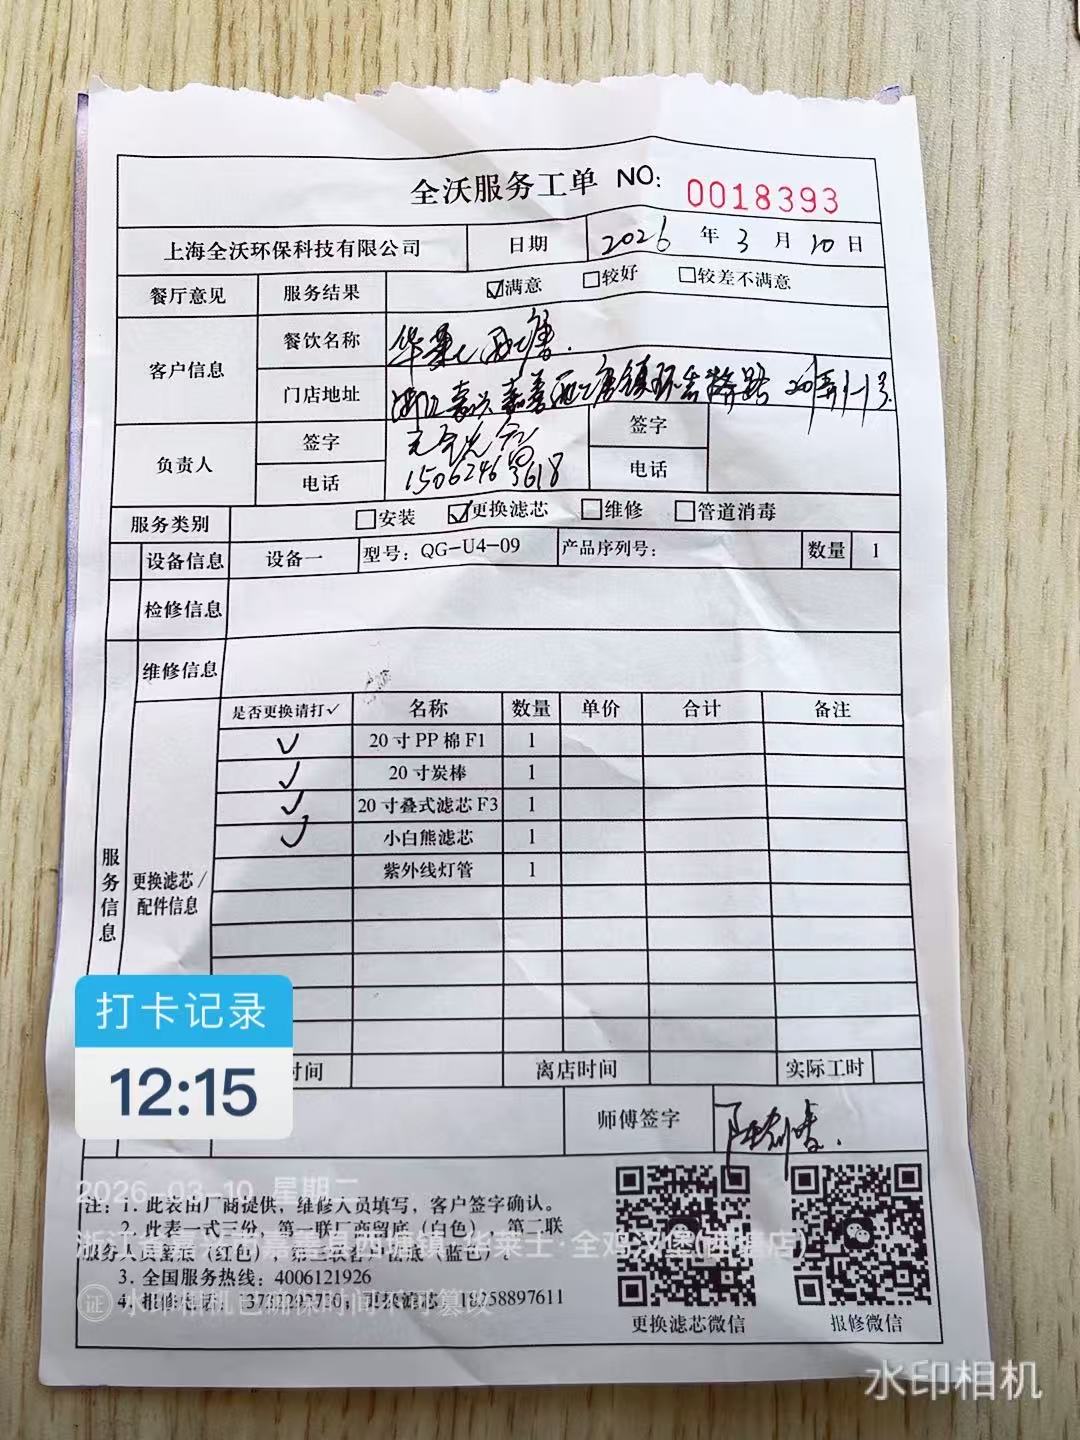 全沃服务工单 NO: 0018393
上海全沃环保科技有限公司 日期 2026 年 3 月 10 日
餐厅意见 服务结果 ☑满意 □较好 □较差不满意
客户信息 餐饮名称 华莱士西塘
门店地址 浙江嘉兴嘉善西塘镇环 路 20弄1-1号
负责人 签字 签字
电话 15062463618 电话
服务类别 □安装 ☑更换滤芯 □维修 □管道消毒
设备信息 设备一 型号: QG-U4-09 产品序列号: 数量 1
检修信息
维修信息
服务信息
更换滤芯/配件信息
是否更换请打✓ 名称 数量 单价 合计 备注
✓ 20寸PP棉F1 1
✓ 20寸炭棒 1
✓ 20寸叠式滤芯F3 1
✓ 小白熊滤芯 1
紫外线灯管 1
时间 离店时间 实际工时
师傅签字
打卡记录
12:15
2026-03-10 星期二
注: 1. 此表由厂商提供, 维修人员填写, 客户签字确认。
2. 此表一式三份, 第一联厂商留底(白色) 第二联
服务人员留底(红色), 第三联客户留底(蓝色)。
浙江省嘉兴市嘉善县西塘镇·华莱士·全鸡汉堡(西塘店)
3. 全国服务热线: 4006121926
4. 报修 更换滤芯 18058897611
证 水印相机已确保时间不可篡改
更换滤芯微信 报修微信
水印相机